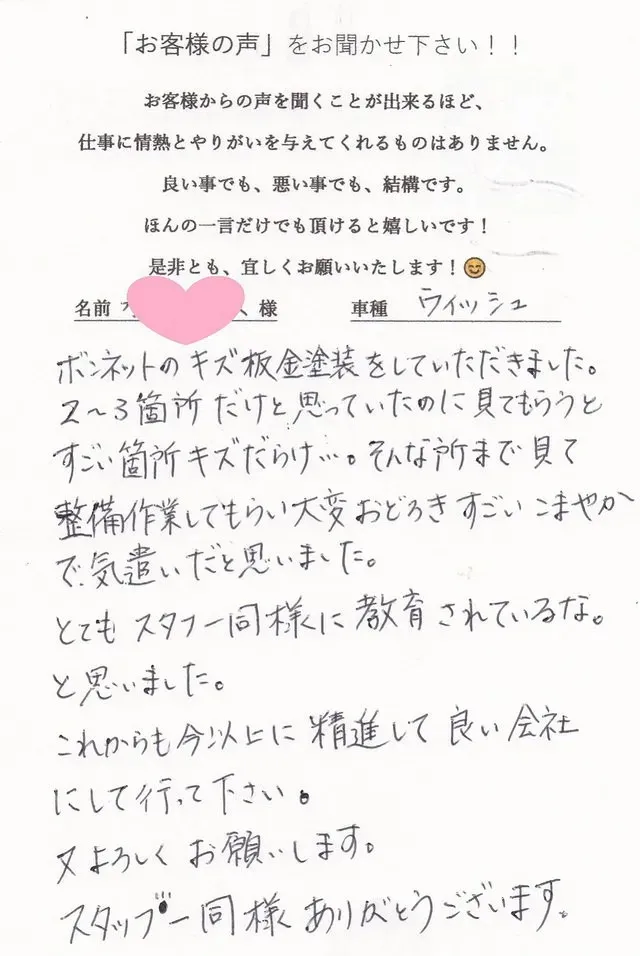 「お客様の声」をお聞かせ下さい！！
お客様からの声を聞くことが出来るほど、
仕事に情熱とやりがいを与えてくれるものはありません。
良い事でも、悪い事でも、結構です。
ほんの一言だけでも頂けると嬉しいです！
是非とも、宜しくお願いいたします！😊
名前 様 車種 ウィッシュ
ボンネットのキズ板金塗装をしていただきました。
2～3箇所だけと思っていたのに見てもらうと
すごい箇所キズだらけ…。そんな所まで見て
整備作業してもらい大変おどろきすごいこまやか
で気遣いだと思いました。
とてもスタフ一同様に教育されているな。
と思いました。
これからも今以上に精進して良い会社
にして行って下さい。
又よろしくお願いします。
スタッフ一同様ありがとうございます。